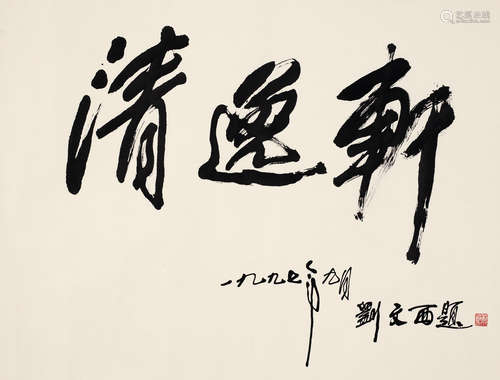 清逸軒
一九九七年九月
劉文西題